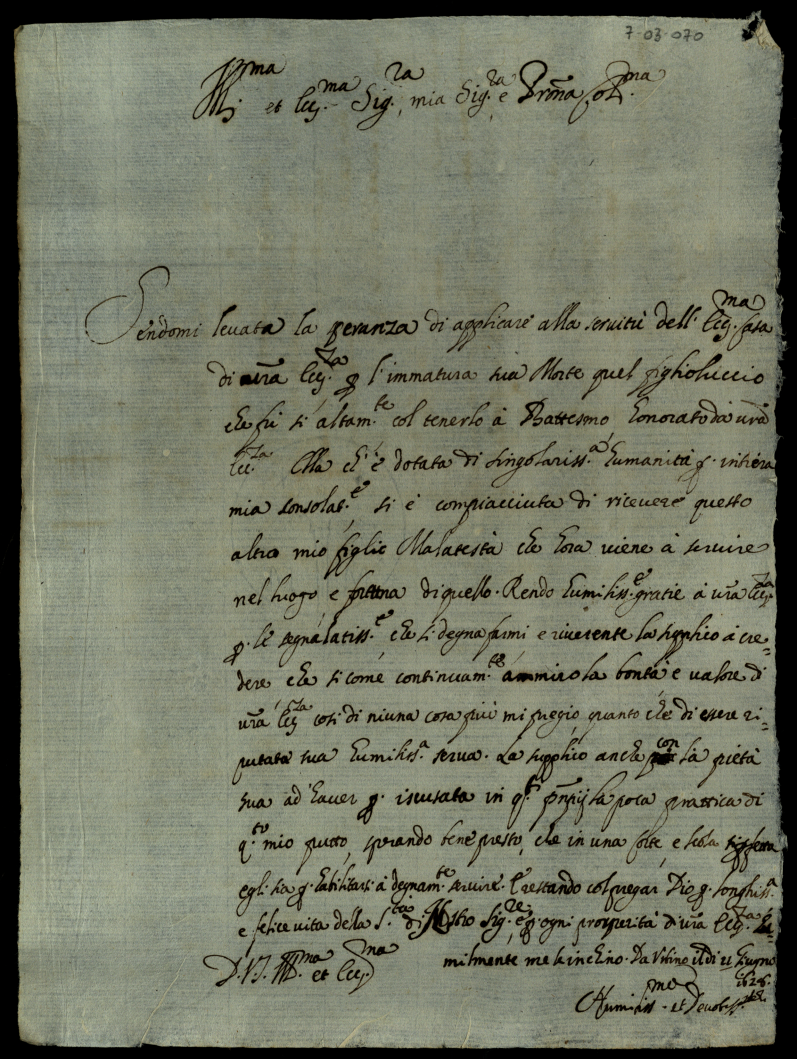 7-03-070
Ill.ma et Ecc.ma Sig.ra mia Sig.ra e Prõna Col.ma
Sendomi levata la speranza di applicare alla servitù dell' Ecc.ma Casa
di vr̃a Ecc.za p l'immatura sua Morte quel figlioluccio
che fù sì altam.te col tenerlo à Battesmo honorato da vr̃a
Ecc.za Ella ch'è dotata di singolariss.a humanità p intiera
mia consolat.e si è compiacciuta di ricevere questo
altro mio figlio Malatesta che hora viene à servire
nel luogo e fortuna di quello. Rendo humiliss.e gratie à vr̃a Ecc.za
p le segnalatiss.e che si degna farmi e riverente la supplico à cre=
dere che si come continuam.te ammiro la bontà e valore di
vr̃a Ecc.za così di niuna cosa più mi pregio quanto che di essere ri=
putata sua humiliss.a serva. La supplico anche con la pietà
sua ad haver p iscusata in q.ti pñpij la poca prattica di
q.to mio putto, sperando bene presto, che in una Corte e scola
egli sia p habilitarsi à degnam.te servire. E restando col pregar Dio p longhiss.a
e felice vita della S.tà di Nostro Sig.re e p ogni prosperità di vr̃a Ecc.za hu=
milmente me le inchino. Da Urbino il dì 21 Giugno
1628.
D. V. Ill.ma et Ecc.ma
Humiliss.me et Devotiss.